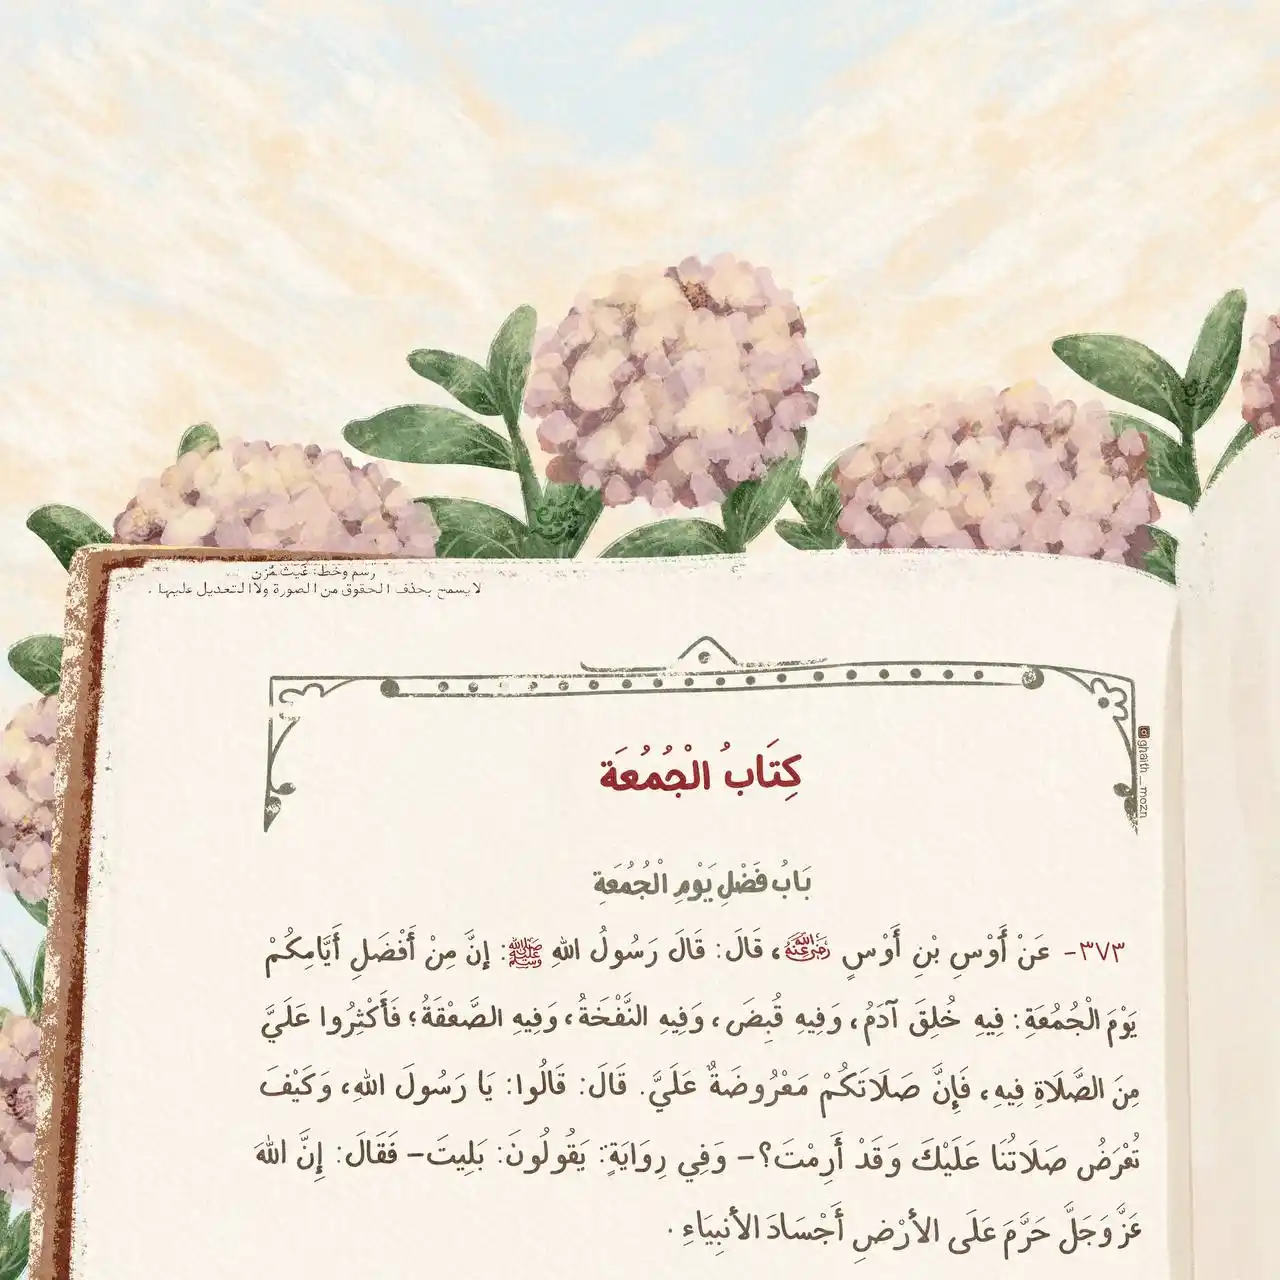 رسم وخط: غيث مُزن
لا يسمح بحذف الحقوق من الصورة ولا التعديل عليها .
كِتَابُ الْجُمُعَة
@ghaith_mozn
بَابُ فَضْلِ يَوْمِ الْجُمُعَةِ
٣٧٣- عَنْ أَوْسِ بْنِ أَوْسٍ رَضِيَ اللَّهُ عَنْهُ، قَالَ: قَالَ رَسُولُ اللهِ ﷺ: إِنَّ مِنْ أَفْضَلِ أَيَّامِكُمْ
يَوْمَ الْجُمُعَةِ: فِيهِ خُلِقَ آدَمُ، وَفِيهِ قُبِضَ، وَفِيهِ النَّفْخَةُ، وَفِيهِ الصَّعْقَةُ؛ فَأَكْثِرُوا عَلَيَّ
مِنَ الصَّلَاةِ فِيهِ، فَإِنَّ صَلَاتَكُمْ مَعْرُوضَةٌ عَلَيَّ. قَالَ: قَالُوا: يَا رَسُولَ اللهِ، وَكَيْفَ
تُعْرَضُ صَلَاتُنَا عَلَيْكَ وَقَدْ أَرِمْتَ؟- وَفِي رِوَايَةٍ: يَقُولُونَ: بَلِيتَ- فَقَالَ: إِنَّ اللهَ
عَزَّ وَجَلَّ حَرَّمَ عَلَى الأَرْضِ أَجْسَادَ الأَنبِيَاءِ .